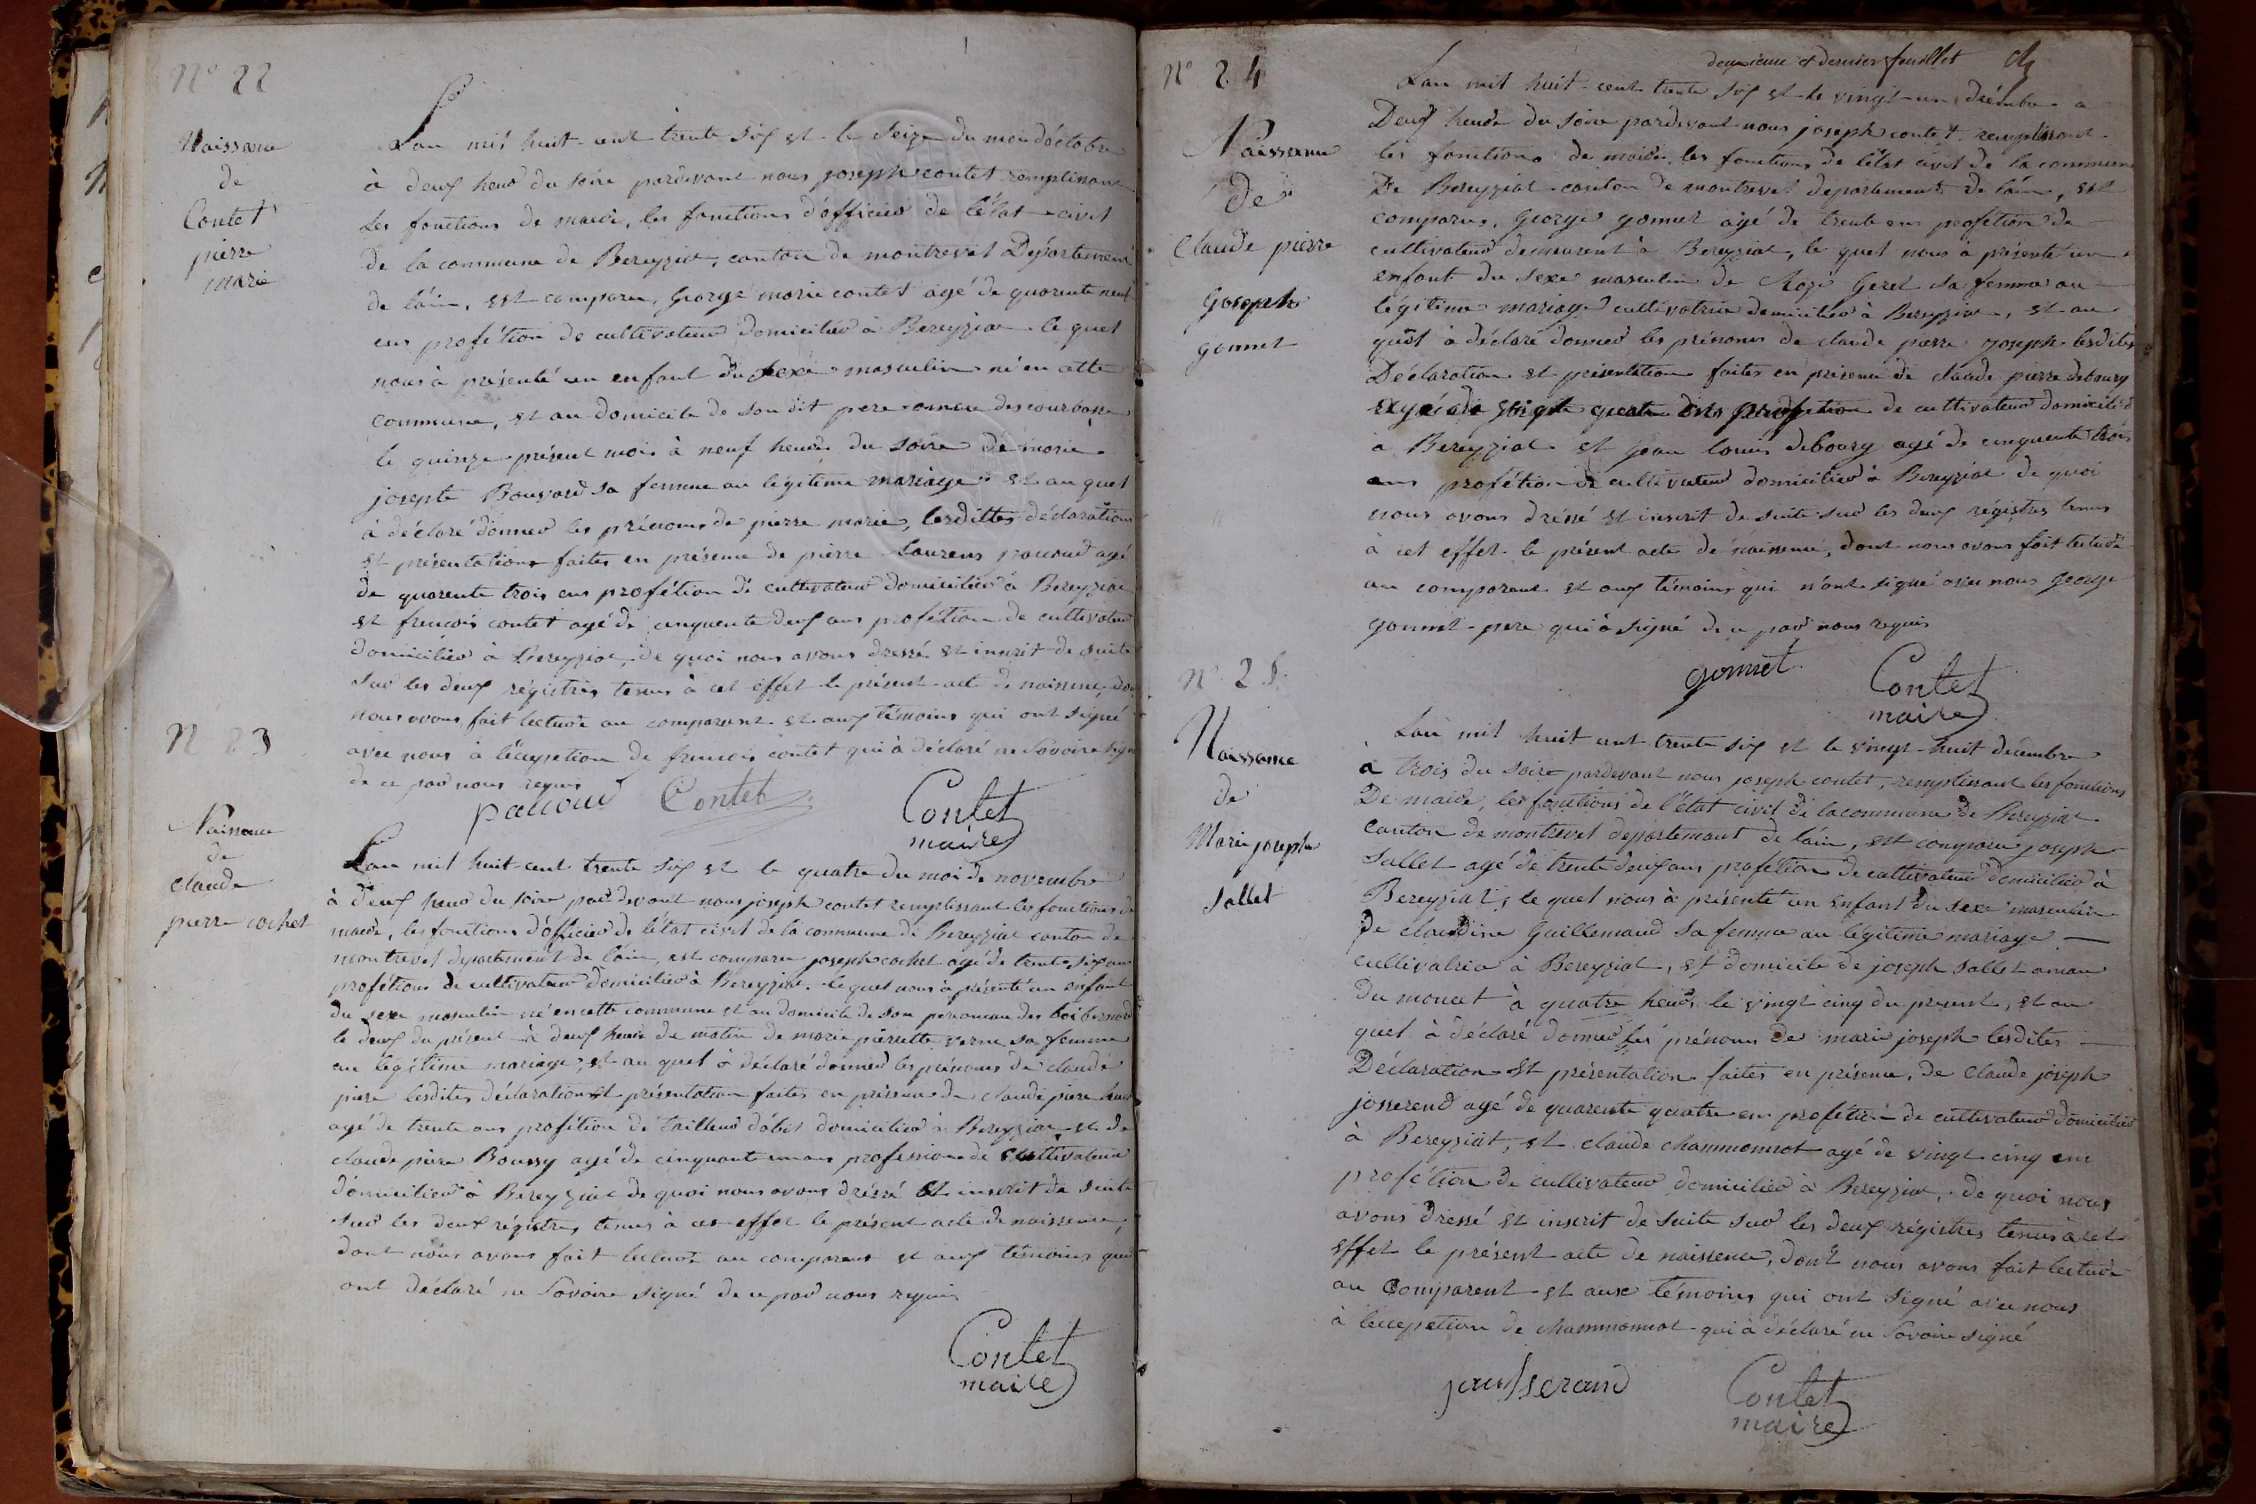 N° 22
Naissance
de
Contet
pierre
marie
Lan mil huit cent trente six et le seize du moi d'octobre
à deux heur du soire pardevant nous joseph contet remplissant
les fonctions de maire, les fonctions d'officier de l'état civil
de la commune de Bereyziat, canton de montrevel Département
de l'ain, est comparu, George marie contet agé de quarente neuf
ans profétion de cultivateur domicilier à Bereyziat le quel
nous à présenté un enfant du sexe masculin né en cette
commune, et au domicile de son dit pere
le quinze présent mois à neuf heures du soire de marie
josepte Bouvard sa femme au légitime mariage et au quel
à déclaré donner les prénoms de pierre marie, lesdittes déclarations
et présentations faites en présence de pierre Laurens pauoud agé
de quarente trois ans profétion de cultivateur domicilier à Bereyziat
et francois contet agé de cinquente deux ans profétion de cultivateur
domicilier à Bereyziat, de quoi nous avons dressé et inscrit de suite
sur les deux régistres tenus à cet effet le présent acte de naissence, don
nous avons fait lecture au comparant et aux témoins qui ont signé
avec nous à l'éxception de francois contet qui à déclaré ne savoire signé
de ce par nous requis
Contet
Contet
maire
N° 23
Naissance
de
claude
pierre cochet
Lan mil huit cent trente six et le quatre du moi de novembre
à deux heur du soire pardevant nous joseph contet remplissant les fonctions de
maire, les fonctions d'officier de l'état civil de la commune de Bereyziat canton de
montrevel departement de l'ain, est comparu joseph cochet agé de trente six ans
profétions de cultivateur domicilier à Bereyziat. le quel nous à présenté un enfant
du sexe masculin né en cette commune et au domicile de son pere
le deux du présent à deux heure du matin de marie pierrette verne sa femme
au légitime mariage, et au quel à déclaré donner les prénoms de claude
piere lesdites déclaration et présentation faites en présence de claude piere
agé de trente ans profétion de tailleur d'abit domicilier à Bereyziat et de
claude piere Boussy agé de cinquant un ans profession de cultivateur
domicilier à Bereyziat de quoi nous avons dréssé et inscrit de suite
sur les deux régistres tenus à cet effet le présent acte de naissence,
dont nous avons fait lecture au comparent et aux témoins qui
ont déclaré ne savoire signé de ce par nous requis
Contet
maire
deuxieme et dernier feuillet
N° 24
Naissance
de
claude pierre
Joseph
gonnet
Lan mil huit cent trente six et le vingt un décembre a
Deux heure du soire pardevant nous joseph contet remplissant
les fonctions de maire, les fonctions de l'état civil de la commune
De Bereyziat canton de montrevel departement de l'ain, est
comparus, George gonnet agé de trente ans profétion de
cultivateur demeurent à Bereyziat, le quel nous à présenté un
enfant du sexe masculin de sa femme au
légitime mariage cultivatrice domicilier à Bereyziat, et au
quel à déclaré donner les prénoms de claude pierre joseph lesdites
Déclaration et présentation faites en présence de claude pierre debourg
profetion de cultivateur domicilier
à Bereyziat et jean louis debourg agé de cinquente trois
ans profétion de cultivateur domicilier à Bereyziat de quoi
nous avons dréssé et inscrit de suite sur les deux régistres tenus
à cet effet le présent acte de naissence, dont nous avons fait lecture
au comparent et aux témoins qui n'ont signé avec nous George
gonnet pere qui à signé de ce par nous requis
gonnet
Contet
maire
N° 25
Naissance
de
Marie joseph
Sallet
Lan mil huit cent trente six et le vingt huit décembre
à trois du soire pardevant nous joseph contet, remplissant les fonctions
De maire, les fonctions de l'état civil de la commune de Bereyziat
Canton de montrevel departemant de l'ain, est comparu joseph
Sallet agé de trente deux ans profétion de cultivateur domicilier à
Bereyziat, le quel nous à présenté un enfant du sexe masculin
De claudine Guillemaud sa femme au légitime mariage
cultivatrice à Bereyziat, et domicile de joseph Sallet
du moucet à quatre heures le vingt cinq du présent, et au
quel à déclaré donner les prénoms de marie joseph lesdites
Déclaration et présentation faites en présence, de claude joseph
josserend agé de quarente quatre ans profétion de cultivateur domicilier
à Bereyziat, et claude chammonnot agé de vingt cinq ans
profétion de cultivateur domicilier à Bereyziat, de quoi nous
avons dressé et inscrit de suite sur les deux régistres tenus à cet
effet le présent acte de naissence, dont nous avons fait lecture
au comparent et aux témoins qui ont signé avec nous
à l'exception de chammonnot qui à déclaré ne savoire signé
Contet
maire